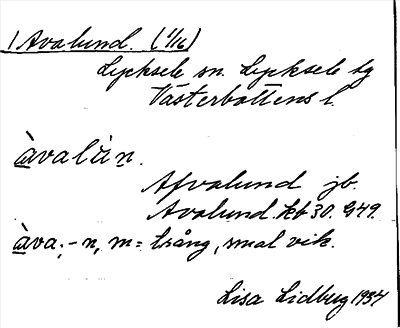 1 Avalund. (1/16)
Lycksele sn. Lycksele tg
Västerbottens l.
àvalùn.
Afvalund jb.
Avalund. kb 30. G49.
àva, -n, m = trång, smal vik.
Lisa Lidberg 1934